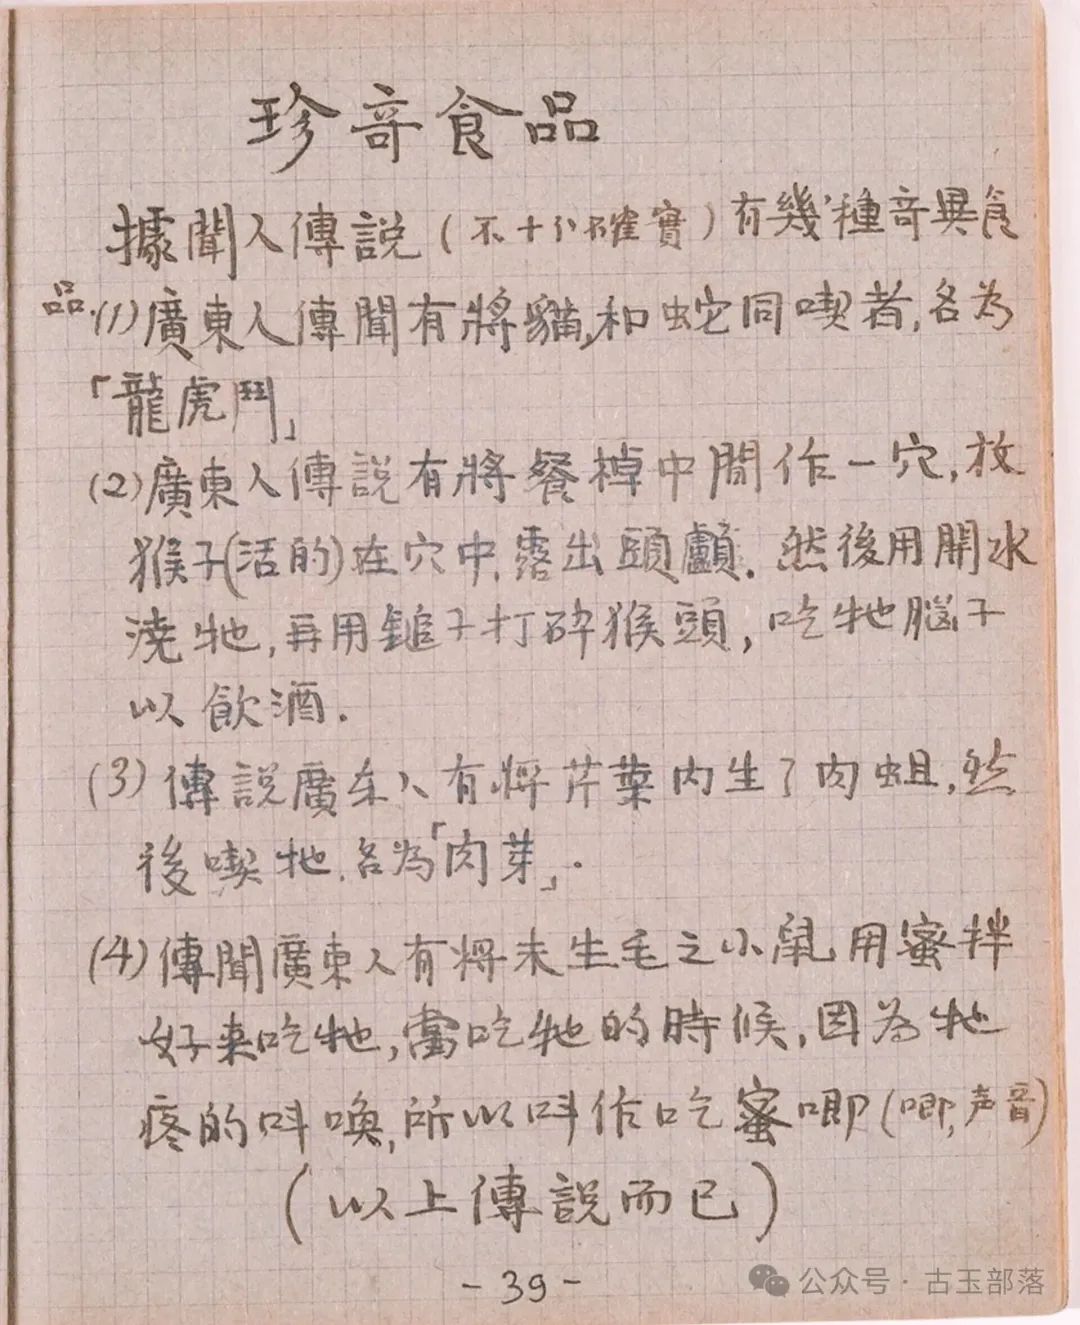 珍奇食品
據聞人傳説(不十分確實)有幾種奇異食
品.(1)廣東人傳聞有將貓,和蛇同喫者,名為
「龍虎鬥」
(2)廣東人傳説有將餐棹中間作一穴,放
猴子(活的)在穴中,露出頭顱.然後用開水
澆牠,再用鎚子打碎猴頭,吃牠腦子
以飲酒.
(3)傳説廣东人有將芹葉内生了肉蛆,然
後喫牠.名為「肉芽」.
(4)傳聞廣東人有將未生毛之小鼠用蜜拌
好来吃牠,當吃牠的時候,因為牠
疼的呌喚,所以呌作吃蜜唧(唧,声音)
(以上傳説而已)
-39-
公众号·古玉部落